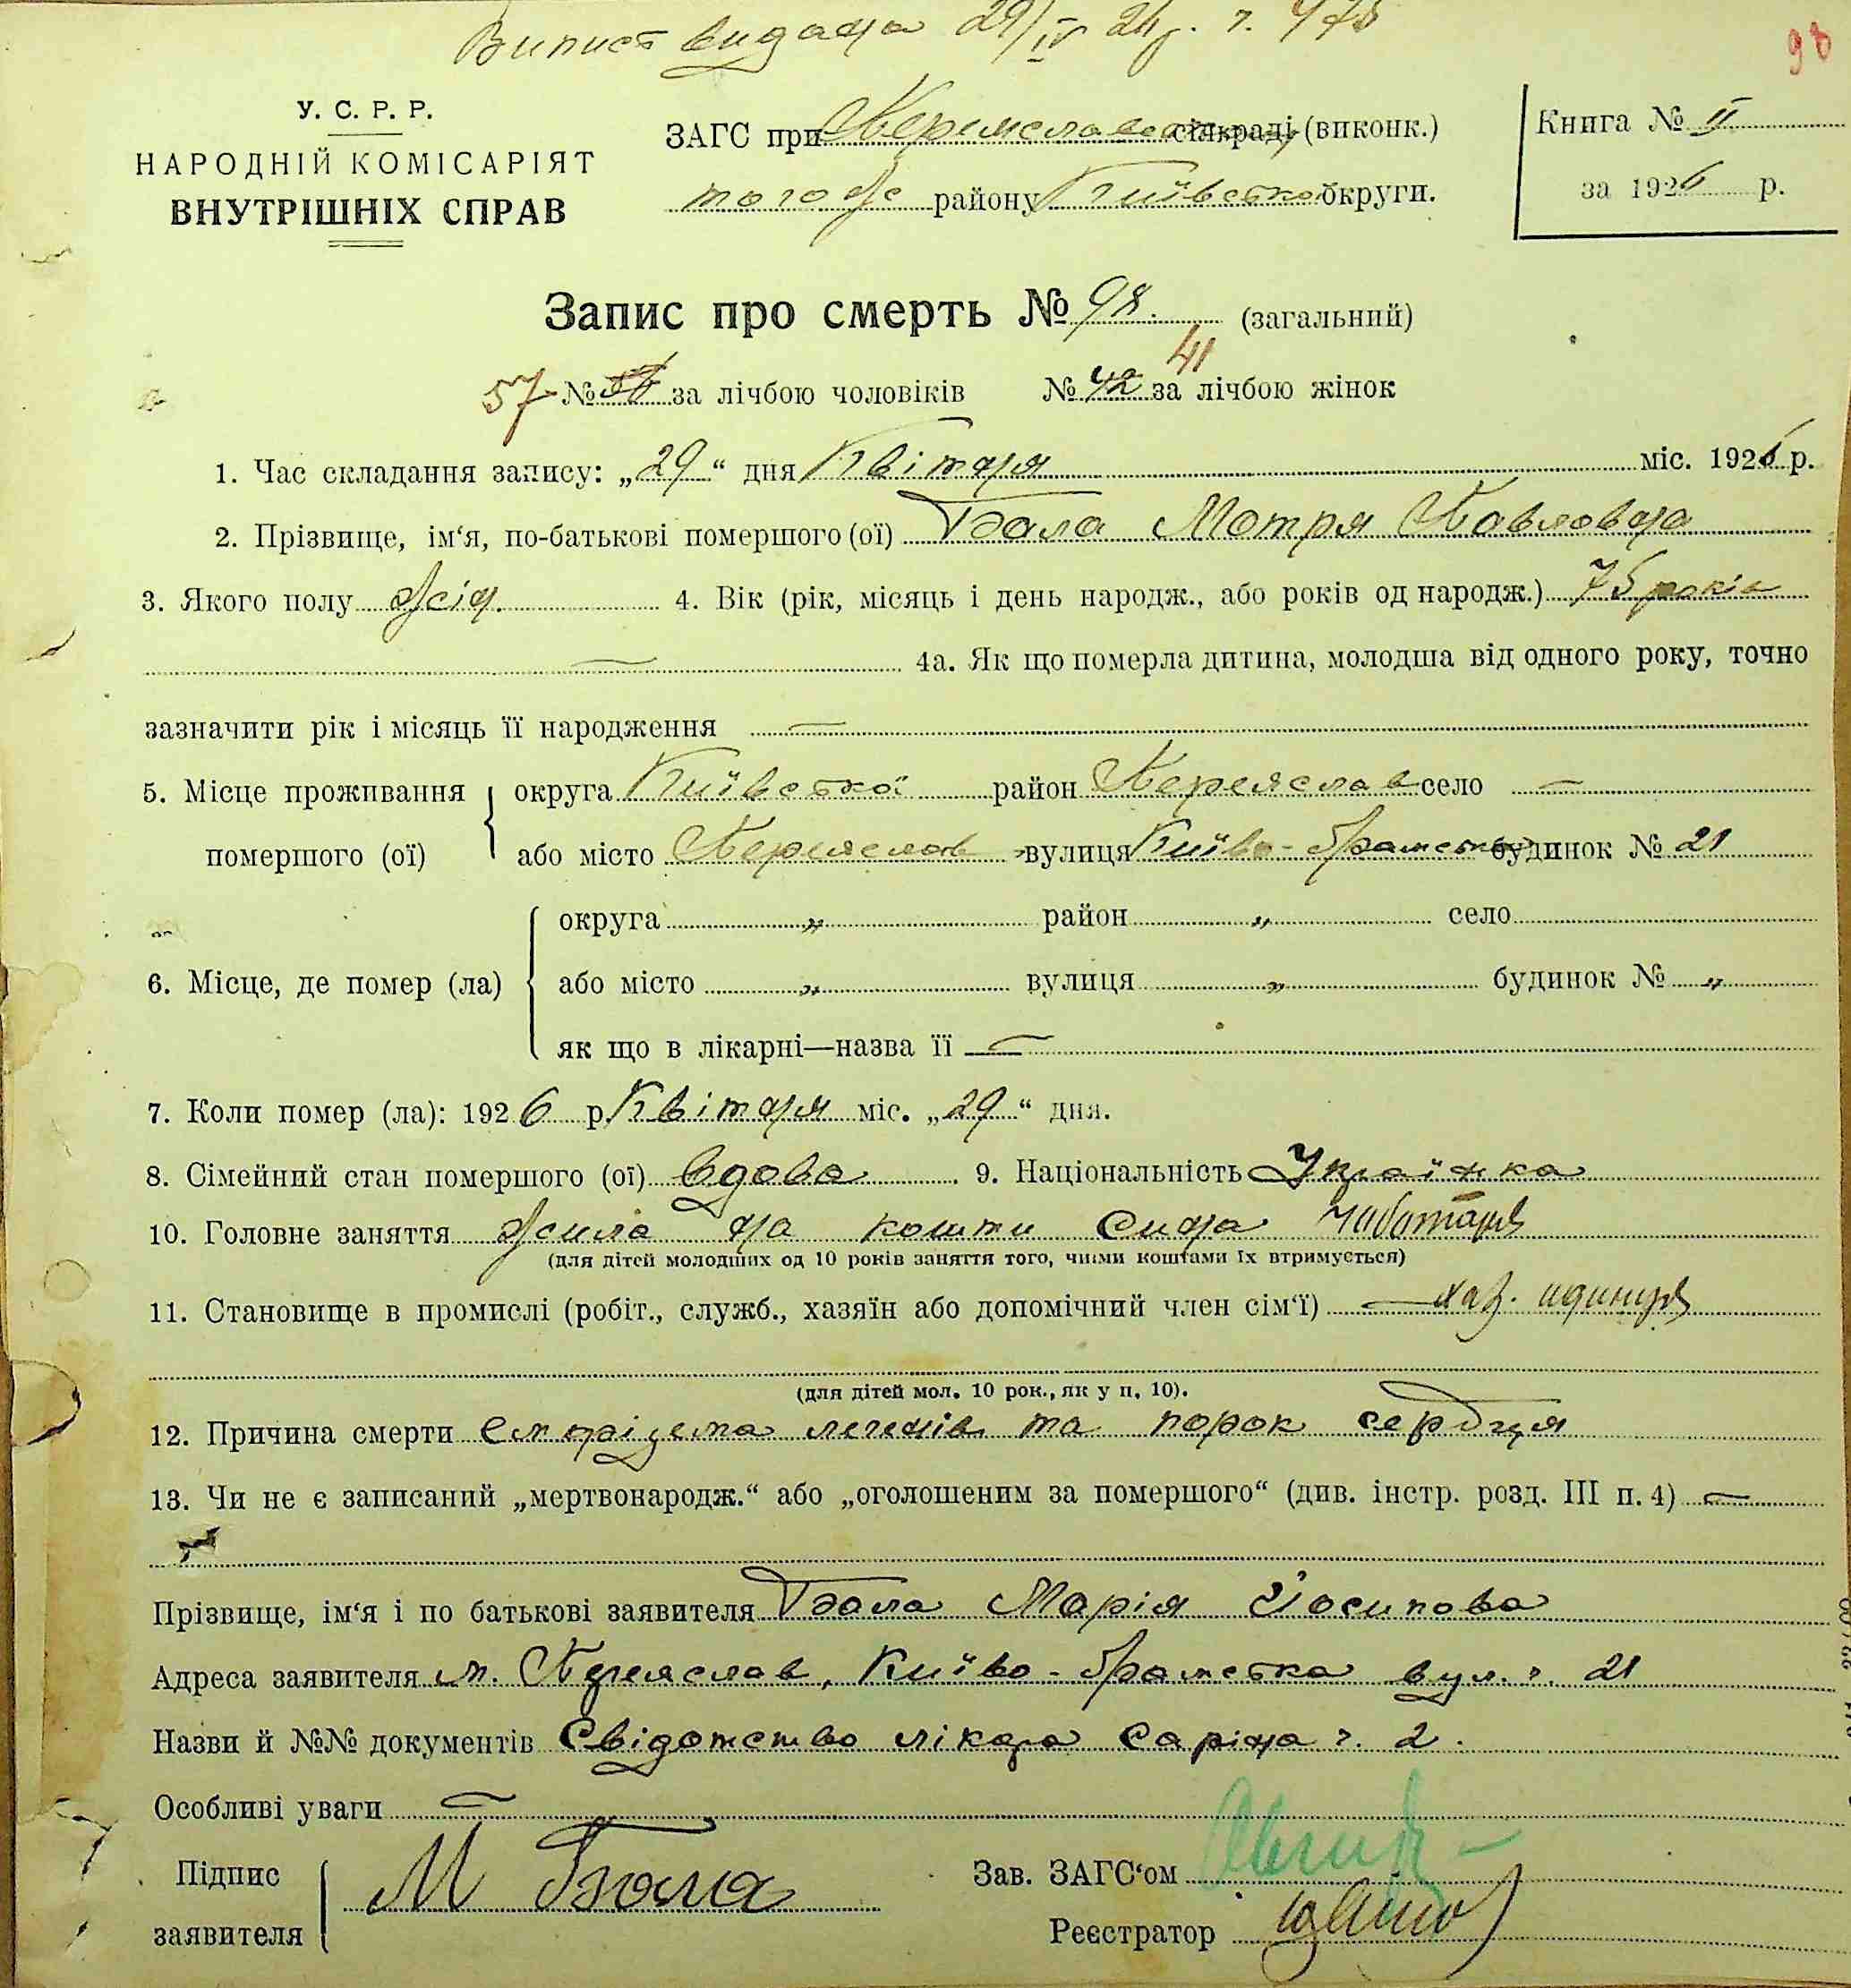 Випись видана 29/IV 26 р. ч. 478
98
У. С. Р. Р.
НАРОДНІЙ КОМІСАРІЯТ
ВНУТРІШНІХ СПРАВ
ЗАГС при Переяславськ. сільраді (виконк.)
того ж району Київсько округи.
Книга № II
за 1926 р.
Запис про смерть № 98. (загальний)
41
57 № за лічбою чоловіків № 42 за лічбою жінок
1. Час складання запису: „29“ дня Квітня міс. 1926 р.
2. Прізвище, ім‘я, по-батькові помершого (ої) Бала Мотря Павловна
3. Якого полу жін. 4. Вік (рік, місяць і день народж., або років од народж.) 75 років
— 4а. Як що померла дитина, молодша від одного року, точно
зазначити рік і місяць її народження —
5. Місце проживання помершого (ої) округа Київської район Переяслав село —
або місто Переяслав вулиця Київо-Братська будинок № 21
6. Місце, де помер (ла) округа „ район „ село
або місто „ вулиця „ будинок № „
як що в лікарні—назва її —
7. Коли помер (ла): 1926 р. Квітня міс. „29“ дня.
8. Сімейний стан помершого (ої) вдова. 9. Національність Українка
10. Головне заняття жила на кошти сина чоботаря
(для дітей молодших од 10 років заняття того, чиїми коштами їх втримується)
11. Становище в промислі (робіт., служб., хазяїн або допомічний член сім‘ї) — хаз. одиниця
(для дітей мол. 10 рок., як у п. 10).
12. Причина смерти емпрізема легенів та порок сердця
13. Чи не є записаний „мертвонародж.“ або „оголошеним за помершого“ (див. інстр. розд. III п. 4) —
Прізвище, ім‘я і по батькові заявителя Бала Марія Йосипова
Адреса заявителя м. Переяслав, Київо-Братська вул. ч. 21
Назви й №№ документів Свідотство лікаря Саріна ч. 2.
Особливі уваги —
Підпис заявителя М Бала
Зав. ЗАГС‘ом
Реєстратор